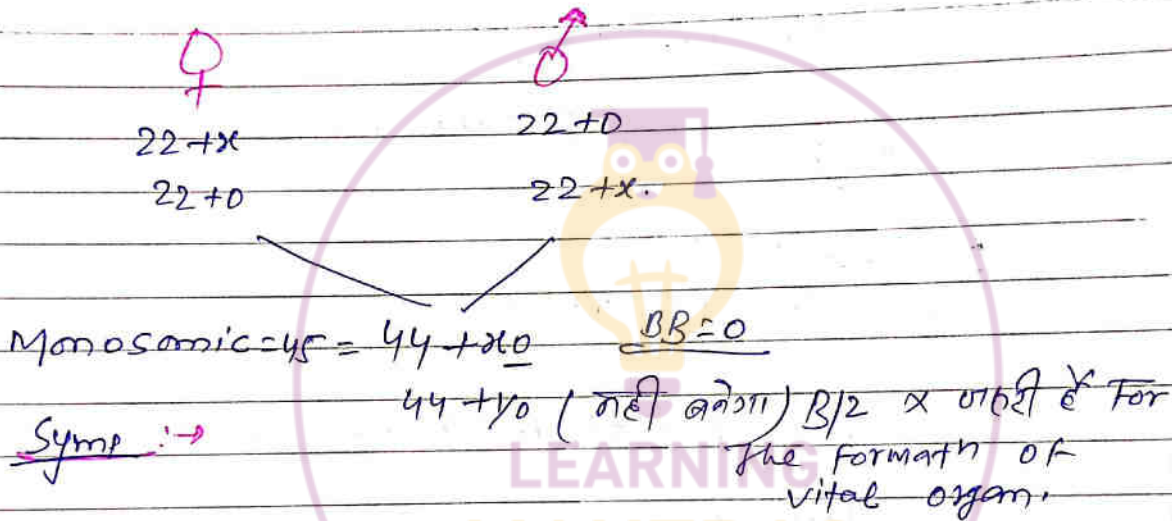 ♀ ♂
22+x 22+0
22+0 22+x.
Monosomic=45= 44+x0 BB=0
44+y0 (नहीं बनेगा) B/2 x जरुरी है For
Symp :→ the formatn of
vital organ.
LEARNING